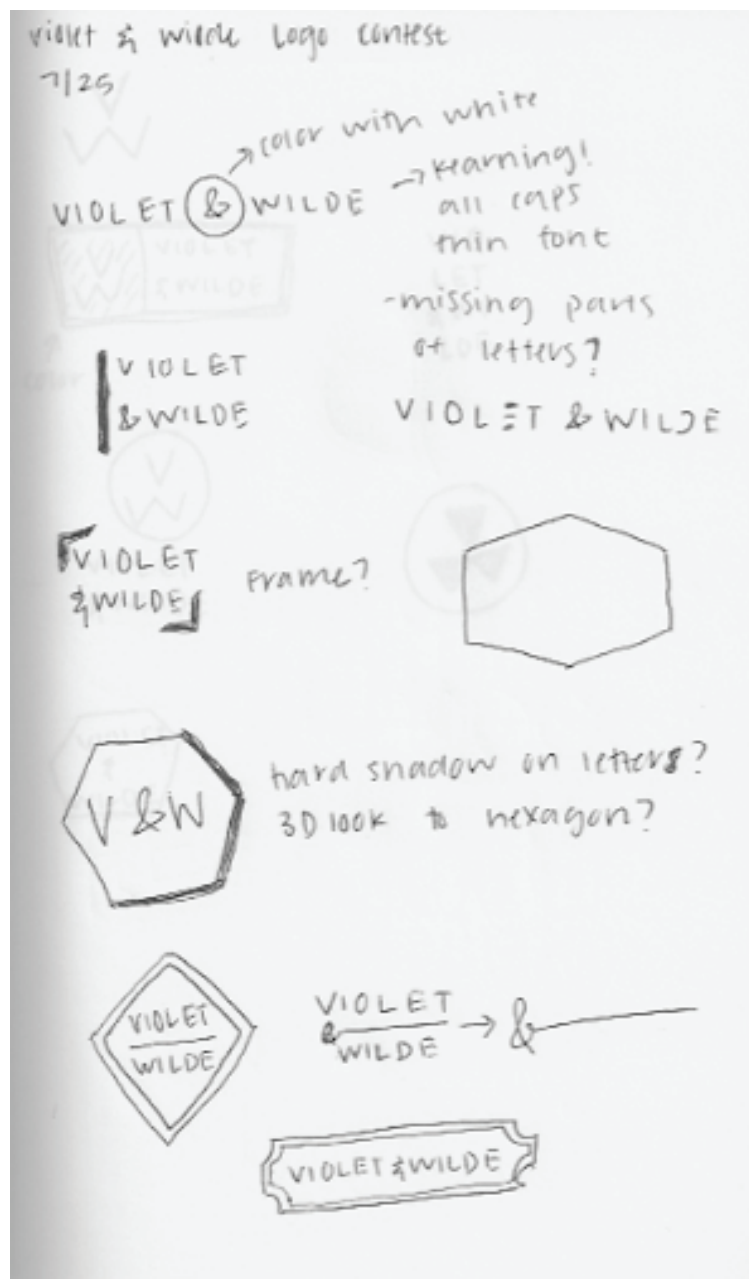 violet & wilde Logo contest
7/25
color with white
VIOLET & WILDE
kearning!
all caps
thin font
-missing parts
of letters?
VIOLET
& WILDE
VIOLET & WILDE
VIOLET
& WILDE
Frame?
V & W
hard shadow on letters?
3D look to hexagon?
VIOLET
WILDE
VIOLET
&
WILDE
&
VIOLET & WILDE